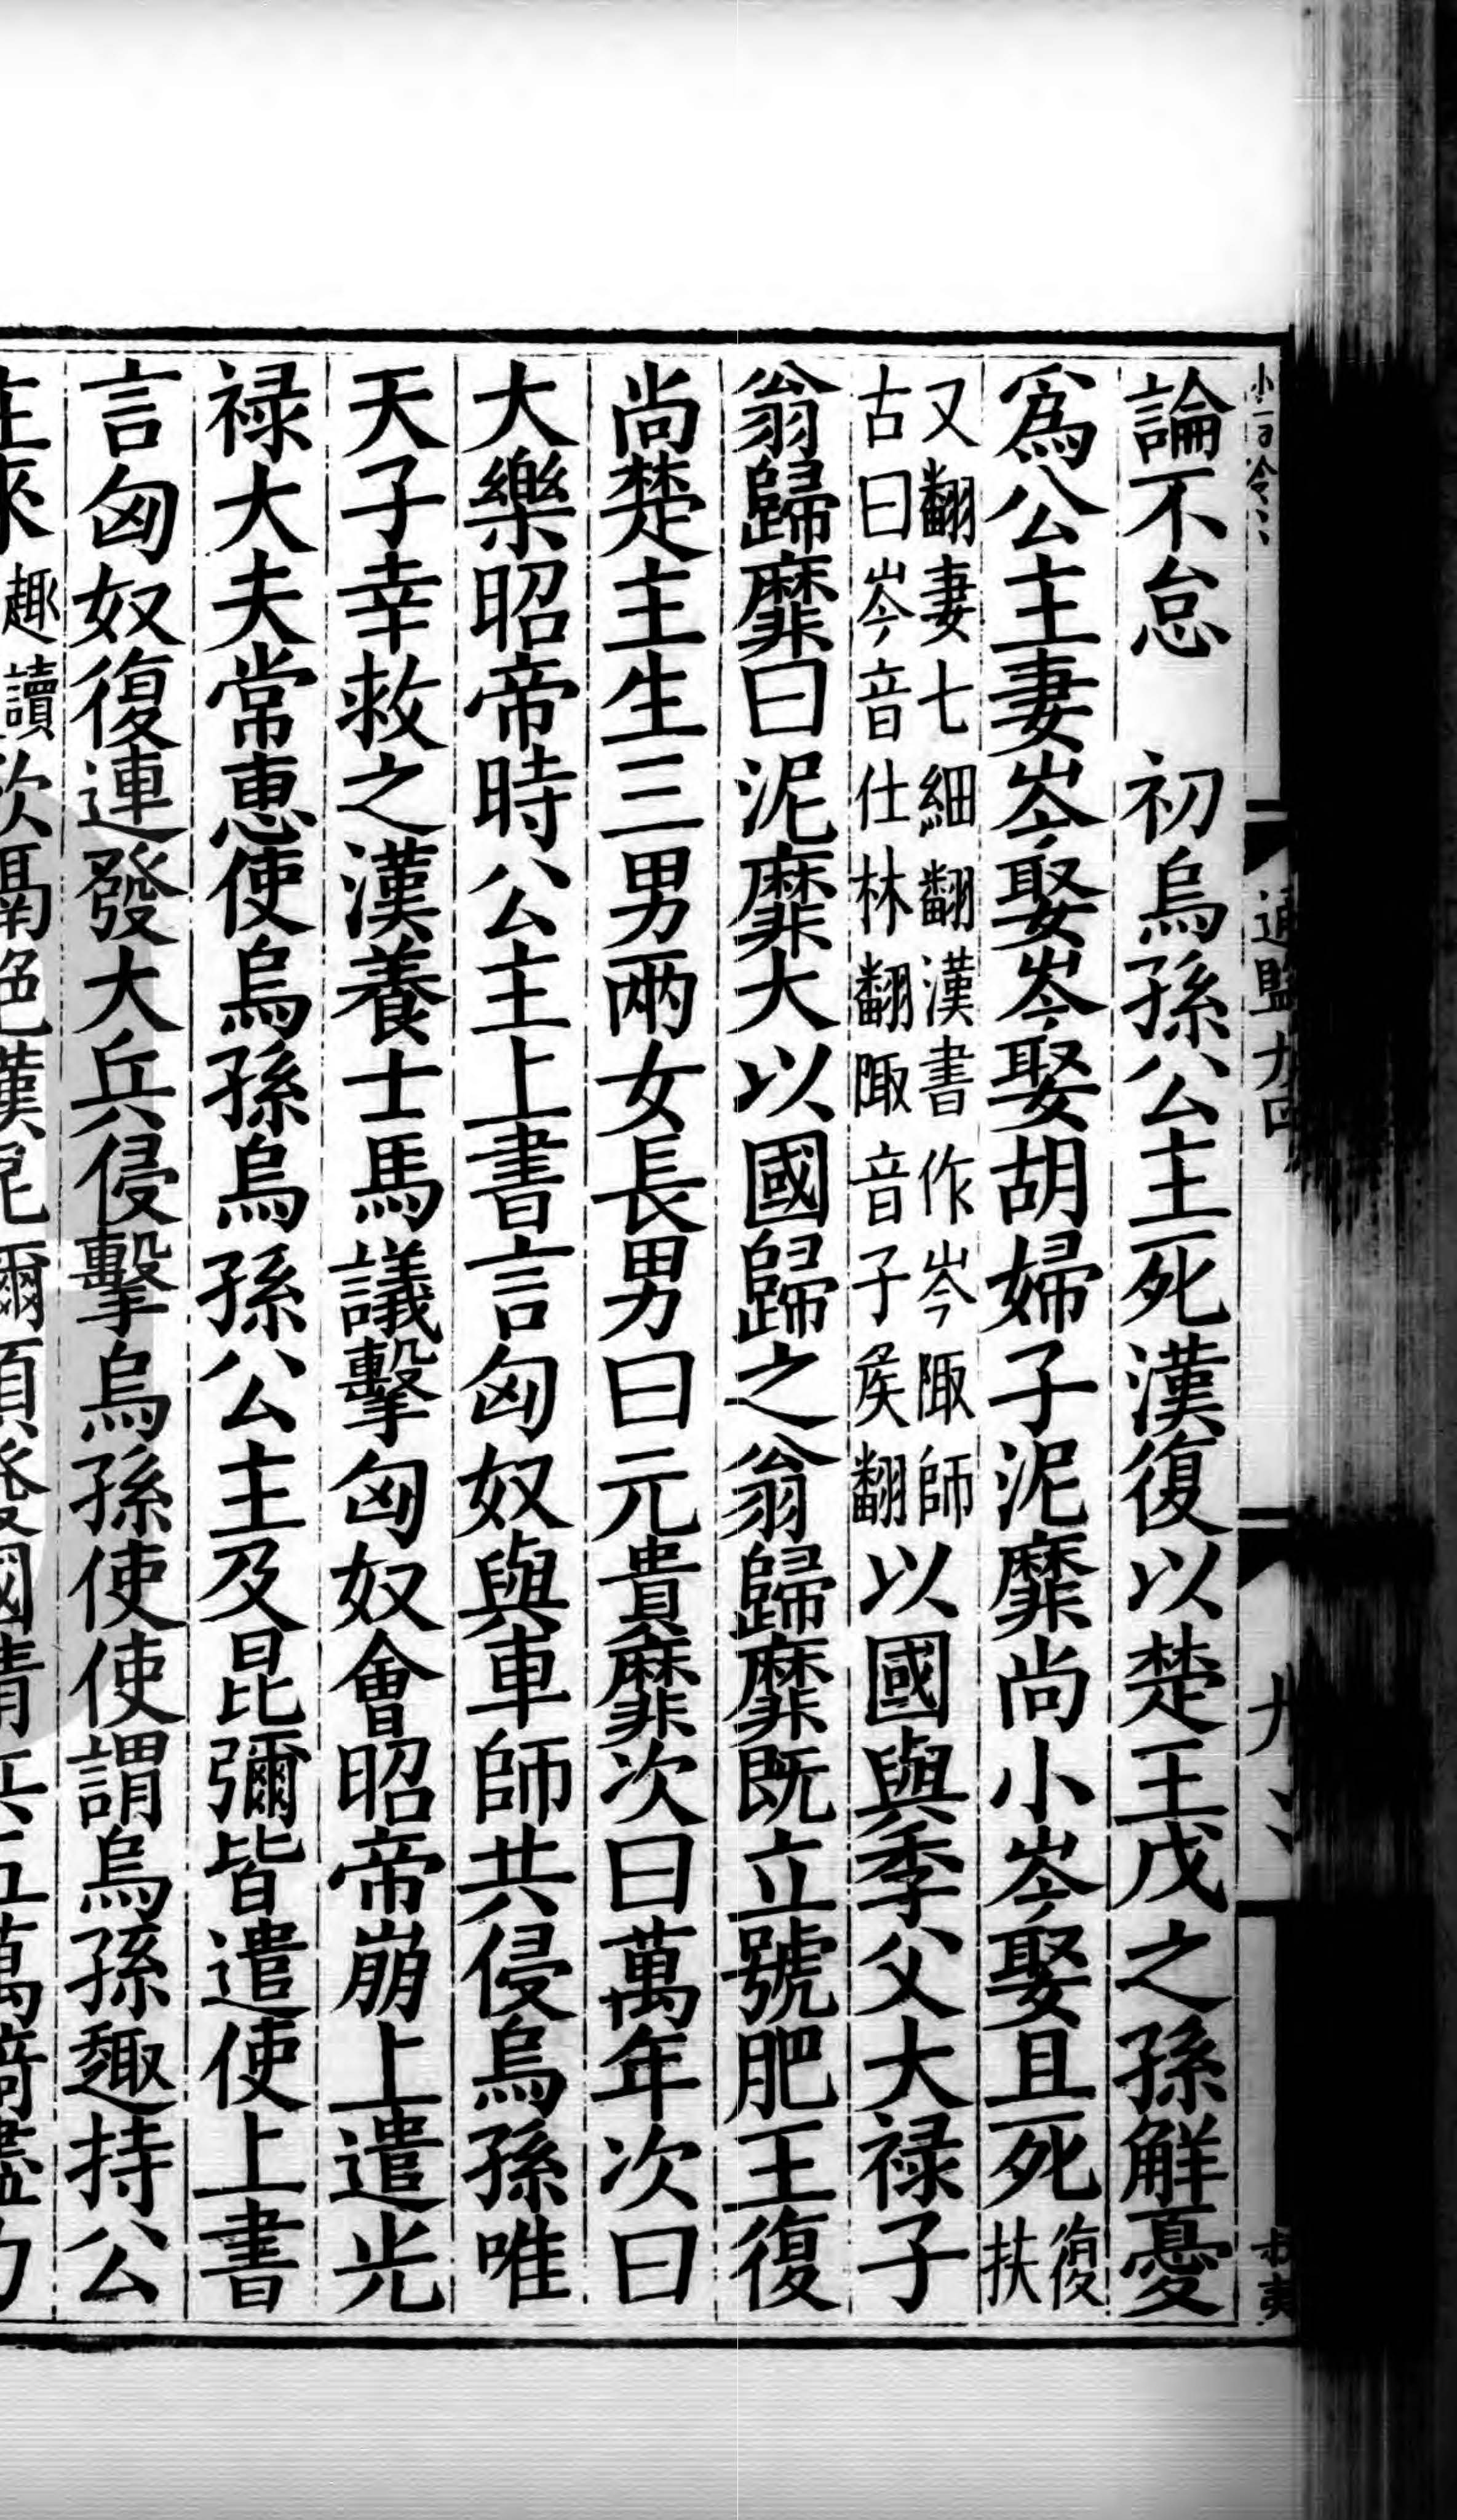 論不怠　初烏孫公主死漢復以楚王戊之孫解憂
爲公主妻岑娶岑娶胡婦子泥靡尚小岑娶且死復扶
又翻妻七細翻漢書作岑陬師古曰岑音仕林翻陬音子矦翻以國與季父大禄子
翁歸靡曰泥靡大以國歸之翁歸靡既立號肥王復
尚楚主生三男兩女長男曰元貴靡次曰萬年次曰
大樂昭帝時公主上書言匈奴與車師共侵烏孫唯
天子幸救之漢養士馬議擊匈奴會昭帝崩上遣光
禄大夫常惠使烏孫烏孫公主及昆彌皆遣使上書
言匈奴復連發大兵侵擊烏孫使使謂烏孫趣持公